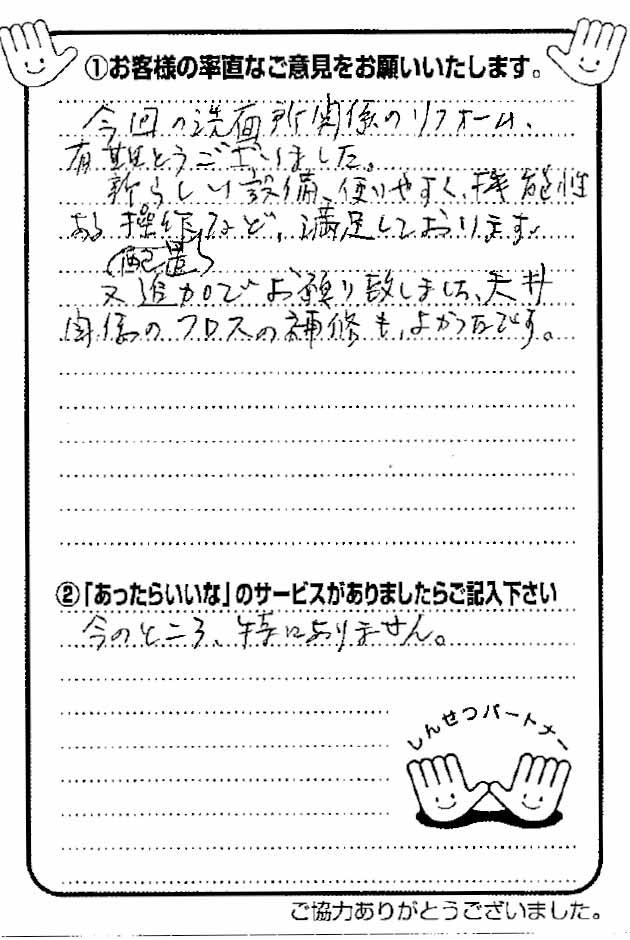 ①お客様の率直なご意見をお願いいたします。
今回の洗面所関係のリフォーム、
有難とうございました。
新らしい設備、使いやすく、機能性
ある操作など、満足しております。
(配置)
又追加でお願い致しました、天井
関係のクロスの補修も、よかったです。
②「あったらいいな」のサービスがありましたらご記入下さい
今のところ、特にありません。
しんせつパートナー
ご協力ありがとうございました。